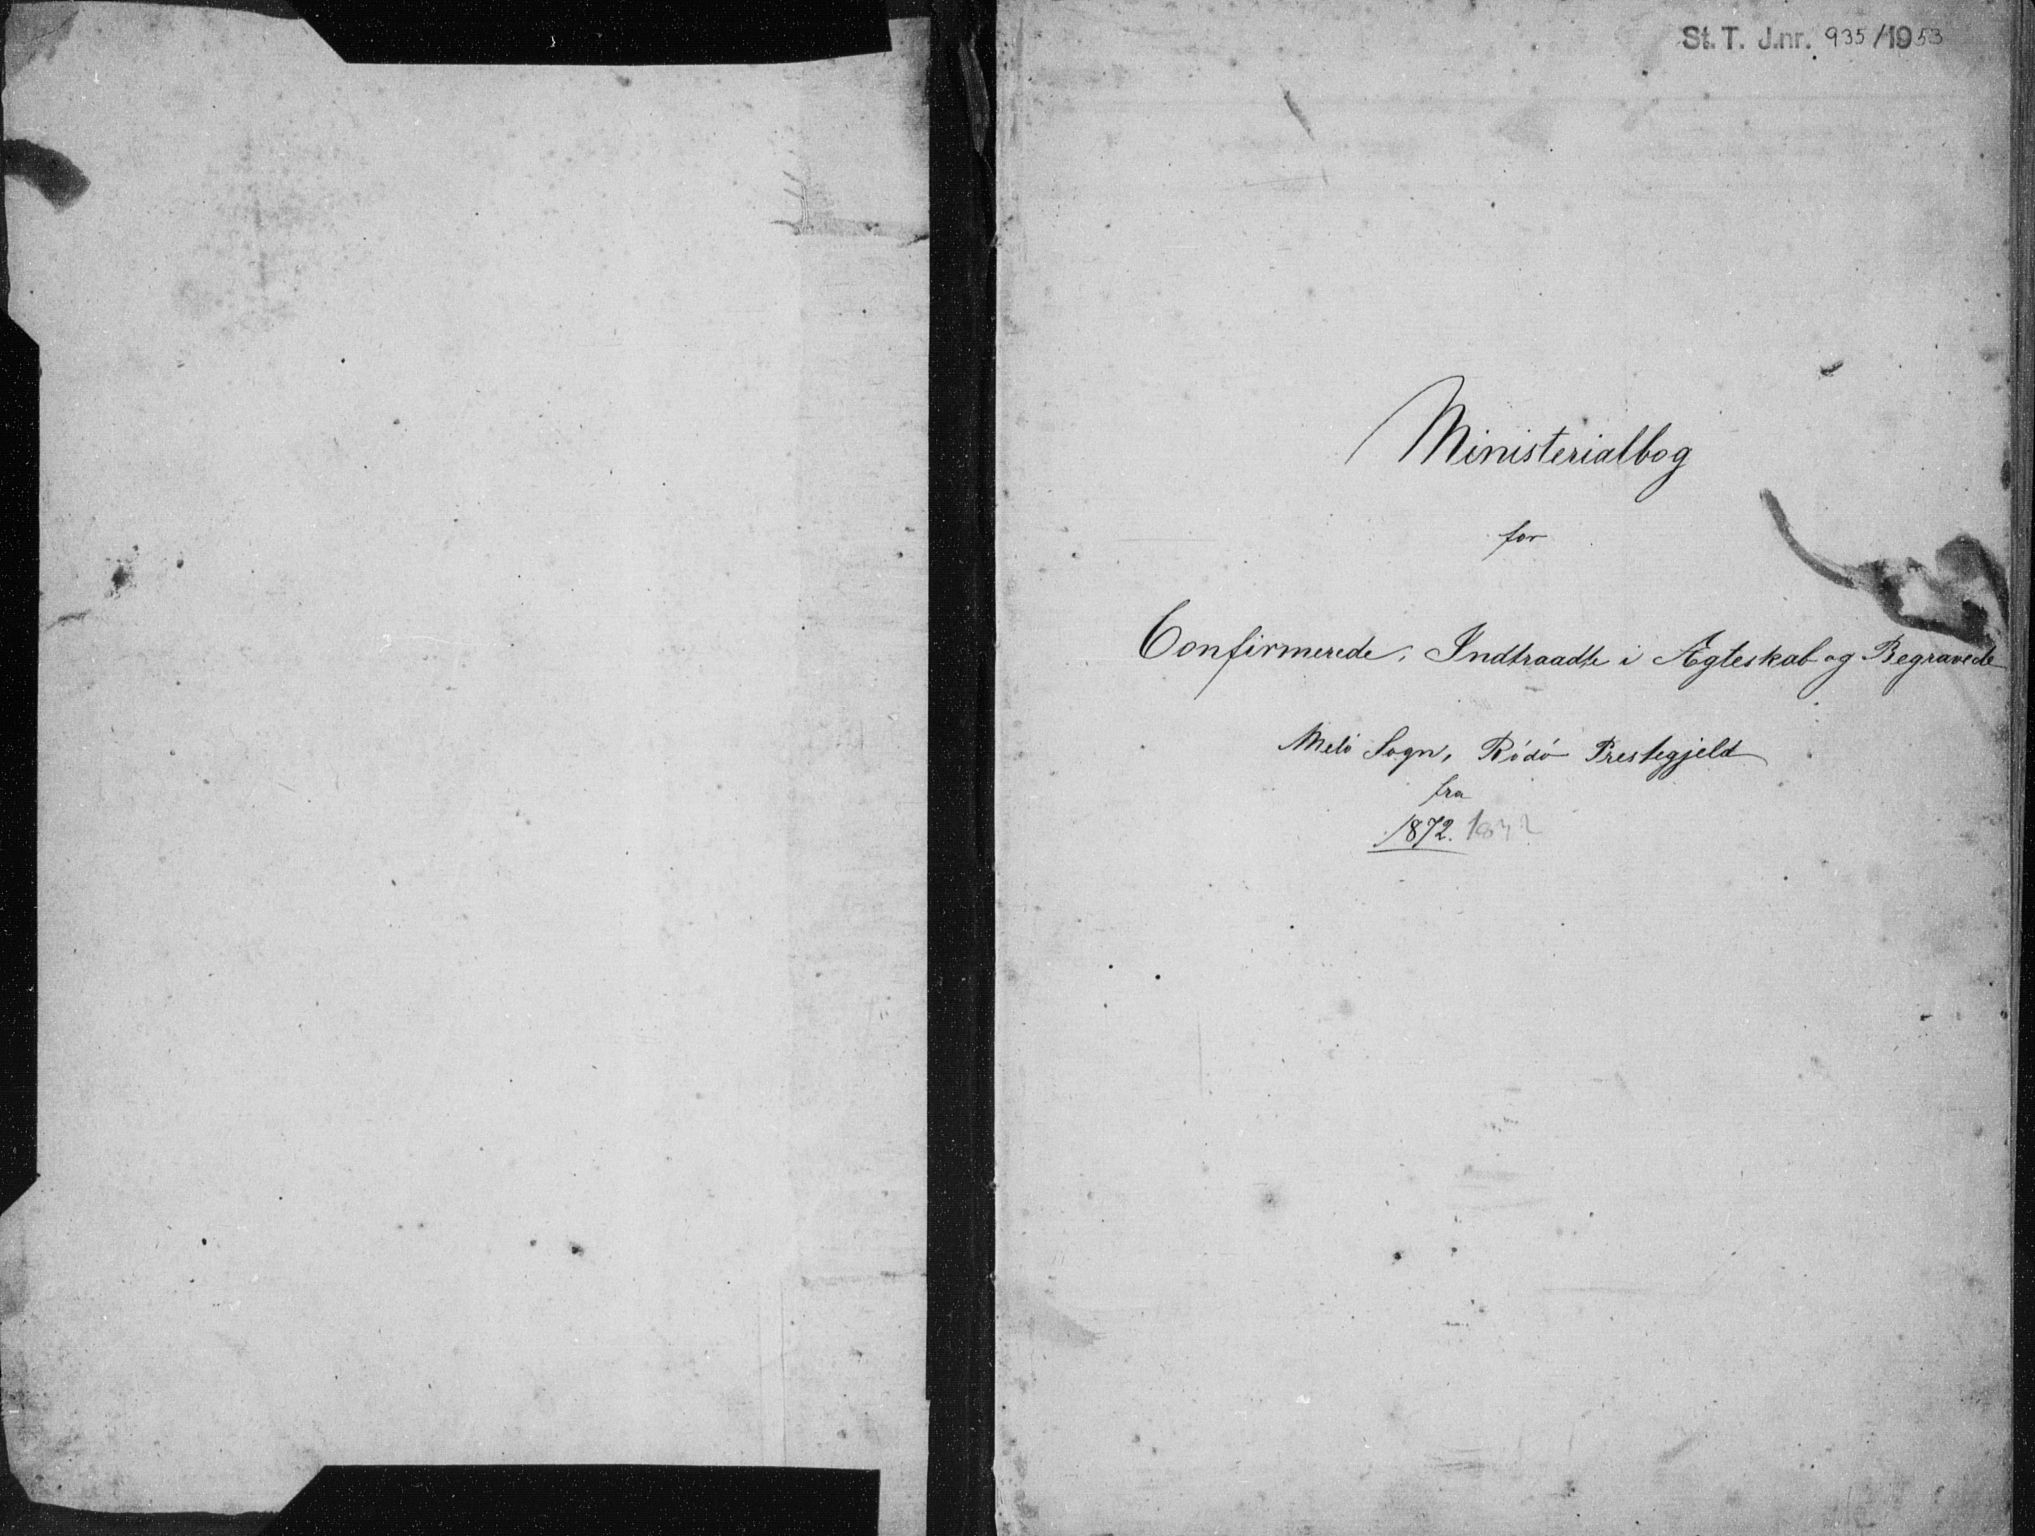 St. T. J.nr. 935/1953
Ministerialbog
for
Confirmerede, Indtraadte i Ægteskab og Begravede
Melö Sogn, Rödö Prestegjeld
fra
1872.